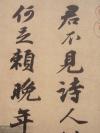 君不見詩人
何意賴晚年